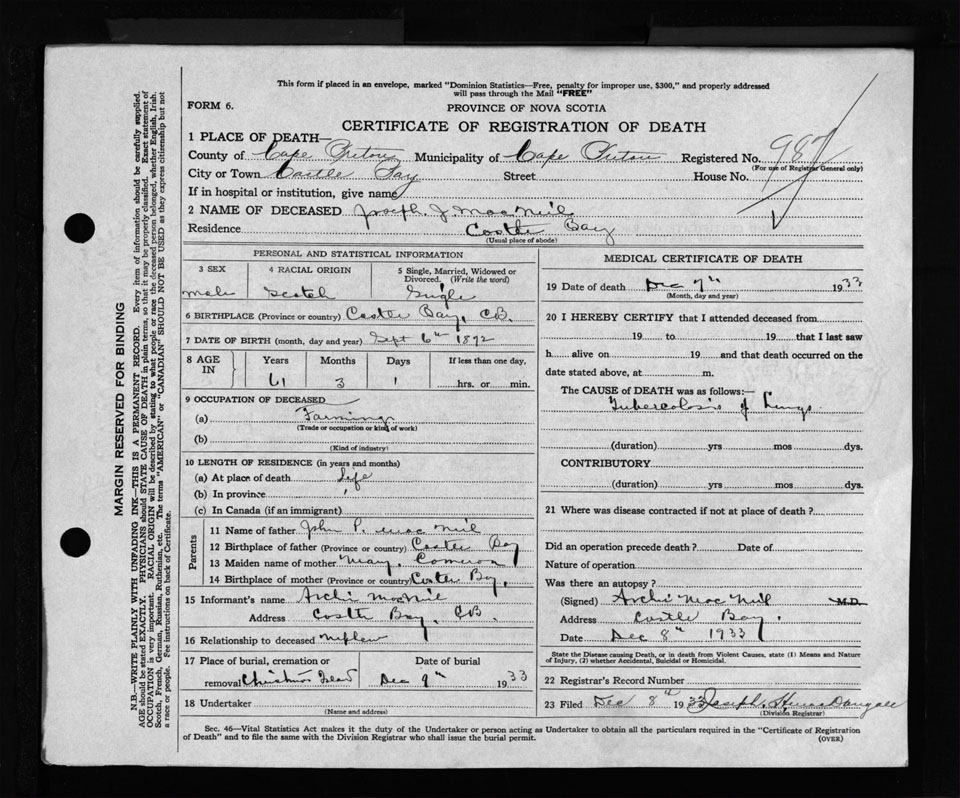 This form if placed in an envelope, marked "Dominion Statistics—Free, penalty for improper use, $300," and properly addressed
will pass through the Mail "FREE"
FORM 6.
PROVINCE OF NOVA SCOTIA
CERTIFICATE OF REGISTRATION OF DEATH
1 PLACE OF DEATH—
County of Cape Breton Municipality of Cape Breton Registered No. 987
(For use of Registrar General only)
City or Town Castle Bay Street House No.
If in hospital or institution, give name
2 NAME OF DECEASED Joseph. J. MacNeil
Residence Castle Bay
(Usual place of abode)
PERSONAL AND STATISTICAL INFORMATION
3 SEX 4 RACIAL ORIGIN 5 Single, Married, Widowed or
Divorced. (Write the word)
Male Scotch Single
6 BIRTHPLACE (Province or country) Castle Bay, C.B.
7 DATE OF BIRTH (month, day and year) Sept 6th 1872
8 AGE IN Years Months Days If less than one day.
61 3 1 hrs. or min.
9 OCCUPATION OF DECEASED
(a) Farming
(Trade or occupation or kind of work)
(b)
(Kind of industry)
10 LENGTH OF RESIDENCE (in years and months)
(a) At place of death Life
(b) In province "
(c) In Canada (if an immigrant)
Parents
11 Name of father John P. MacNeil
12 Birthplace of father (Province or country) Castle Bay
13 Maiden name of mother Mary, Cameron
14 Birthplace of mother (Province or country) Castle Bay,
15 Informant's name Archi MacNeil
Address Castle Bay, C.B.
16 Relationship to deceased Neflew
17 Place of burial, cremation or Date of burial
removal Christmas Island Dec 9th 1933
18 Undertaker
(Name and address)
MEDICAL CERTIFICATE OF DEATH
19 Date of death Dec 7th 1933
(Month, day and year)
20 I HEREBY CERTIFY that I attended deceased from
19 to 19 that I last saw
h alive on 19 and that death occurred on
date stated above, at m.
The CAUSE of DEATH was as follows:—
Tubercolosis of Lungs
(duration) yrs mos dys.
CONTRIBUTORY
(duration) yrs mos dys.
21 Where was disease contracted if not at place of death ?
Did an operation precede death ? Date of
Nature of operation
Was there an autopsy ?
(Signed) Archi MacNeil M.D.
Address Castle Bay.
Date Dec 8th 1933
State the Disease causing Death, or in death from Violent Causes, state (1) Means and Nature
of Injury, (2) whether Accidental, Suicidal or Homicidal.
22 Registrar's Record Number
23 Filed Dec 8th 1933 Joseph. H. MacDougall
(Division Registrar)
Sec. 46—Vital Statistics Act makes it the duty of the Undertaker or person acting as Undertaker to obtain all the particulars required in the "Certificate of Registration
of Death" and to file the same with the Division Registrar who shall issue the burial permit.
(OVER)
MARGIN RESERVED FOR BINDING
N.B.—WRITE PLAINLY WITH UNFADING INK—THIS IS A PERMANENT RECORD. Every item of information should be carefully supplied.
AGE should be stated EXACTLY. PHYSICIANS should STATE CAUSE OF DEATH in plain terms, so that it may be properly classified. Exact statement of
OCCUPATION is very important. RACIAL ORIGIN will be described by stating to what people or race the deceased person belonged, whether English, Irish,
Scotch, French, German, Russian, Ruthenian, etc. The terms "AMERICAN" or "CANADIAN" SHOULD NOT BE USED as they express citizenship but not
a race or people. Fee instructions on back of Certificate.